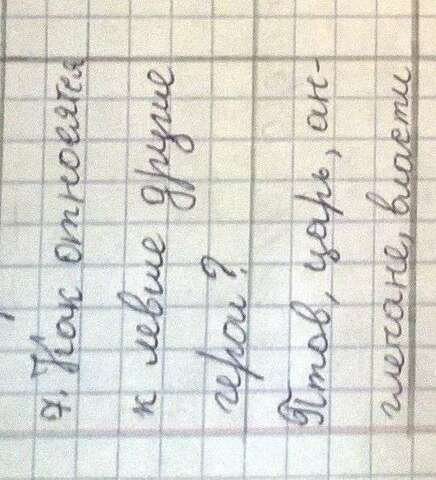 7. Как относятся
к левше другие
герои?
Птов, царь, ан-
гличане, власти